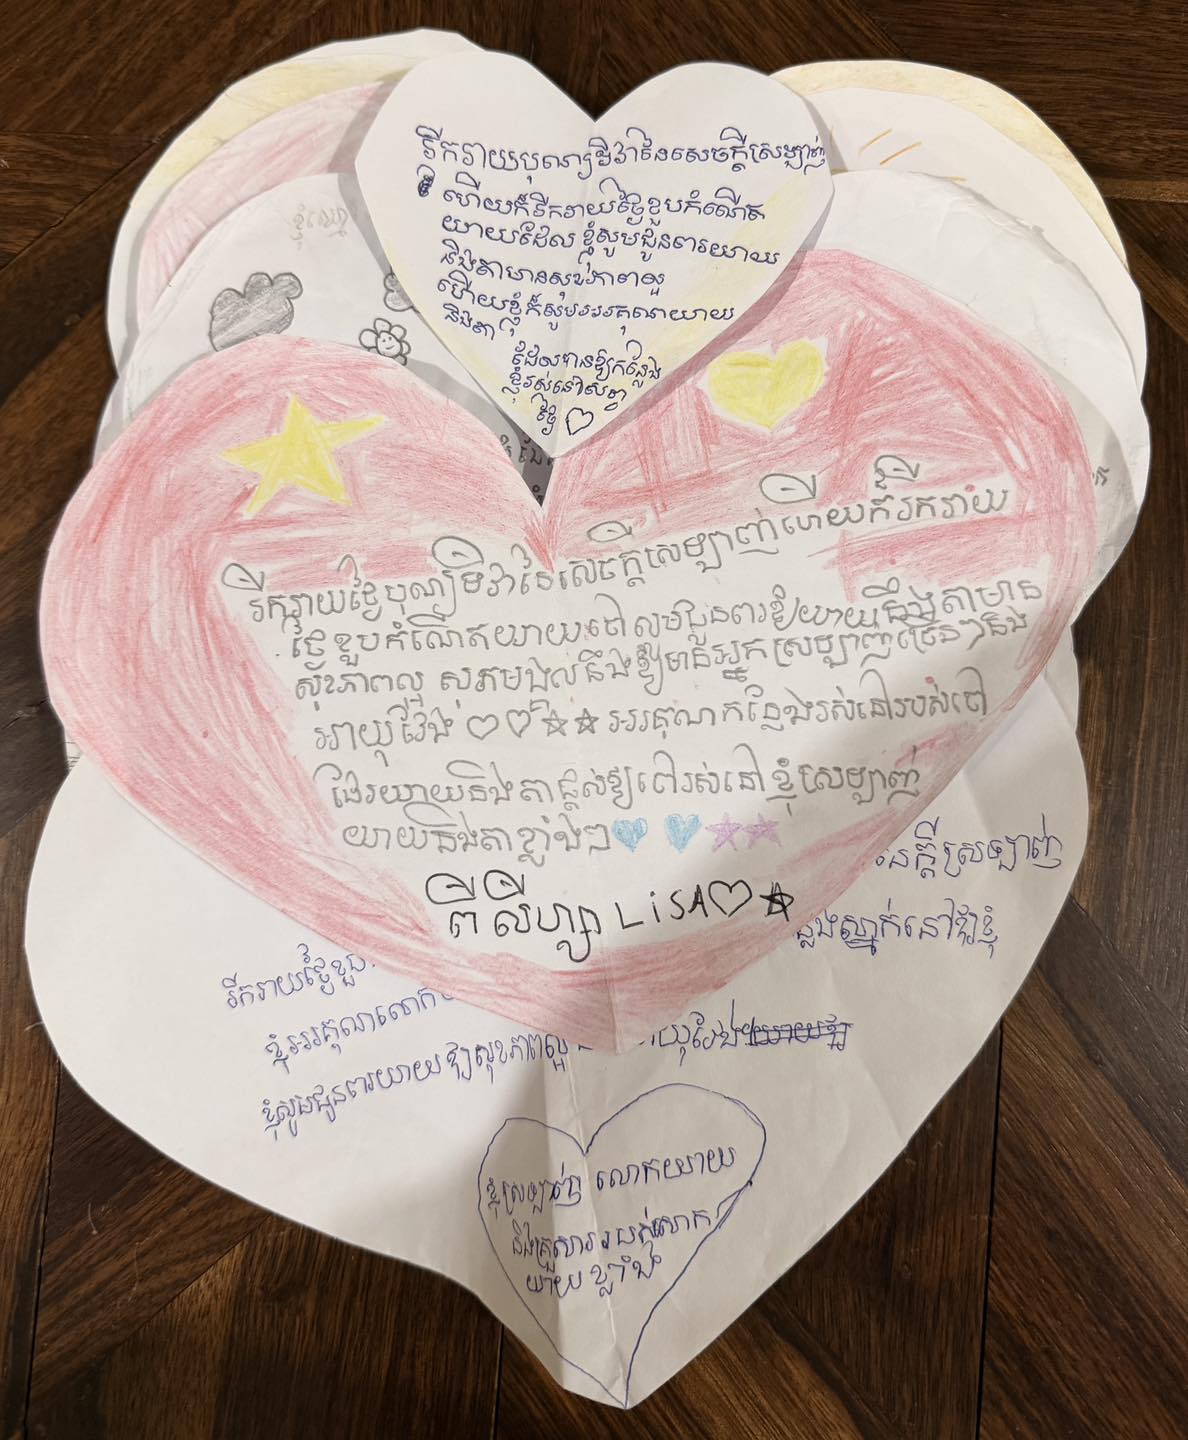 រីករាយបុណ្យទិវានៃសេចក្ដីស្រឡាញ់
ហើយក៏រីករាយថ្ងៃខួបកំណើត
យាយដែល ខ្ញុំសូមជូនពរយាយ
និងតាមានសុខភាពល្អ
ហើយខ្ញុំក៏សូមអរគុណយាយ
និងតា
ដែលបានឱ្យកន្លែង
ខ្ញុំរស់នៅសព្វ
ថ្ងៃ
រីករាយថ្ងៃបុណ្យទិវានៃសេចក្ដីស្រឡាញ់ហើយក៏រីករាយ
ថ្ងៃខួបកំណើតយាយចៅសូមជូនពរឱ្យយាយនឹងតាមាន
សុខភាពល្អ សុភមង្គលនឹងឱ្យមានអ្នកស្រឡាញ់ច្រើនៗនិង
អាយុវែង អរគុណកន្លែងរស់នៅរបស់ចៅ
ដែរយាយនិងតាផ្ដល់ឱ្យចៅរស់នៅ ខ្ញុំស្រឡាញ់
យាយនិងតាខ្លាំងៗ
ពី លីហ្សា LiSA
ក្ដីស្រឡាញ់
ស្នាក់នៅឱ្យខ្ញុំ
រីករាយថ្ងៃខួប
ខ្ញុំអរគុណលោក
ខ្ញុំសូមជូនពរយាយ ឱ្យសុខភាពល្អ យុវែង
ខ្ញុំស្រឡាញ់ លោកយាយ
និងគ្រួសាររបស់លោក
យាយ ខ្លាំង